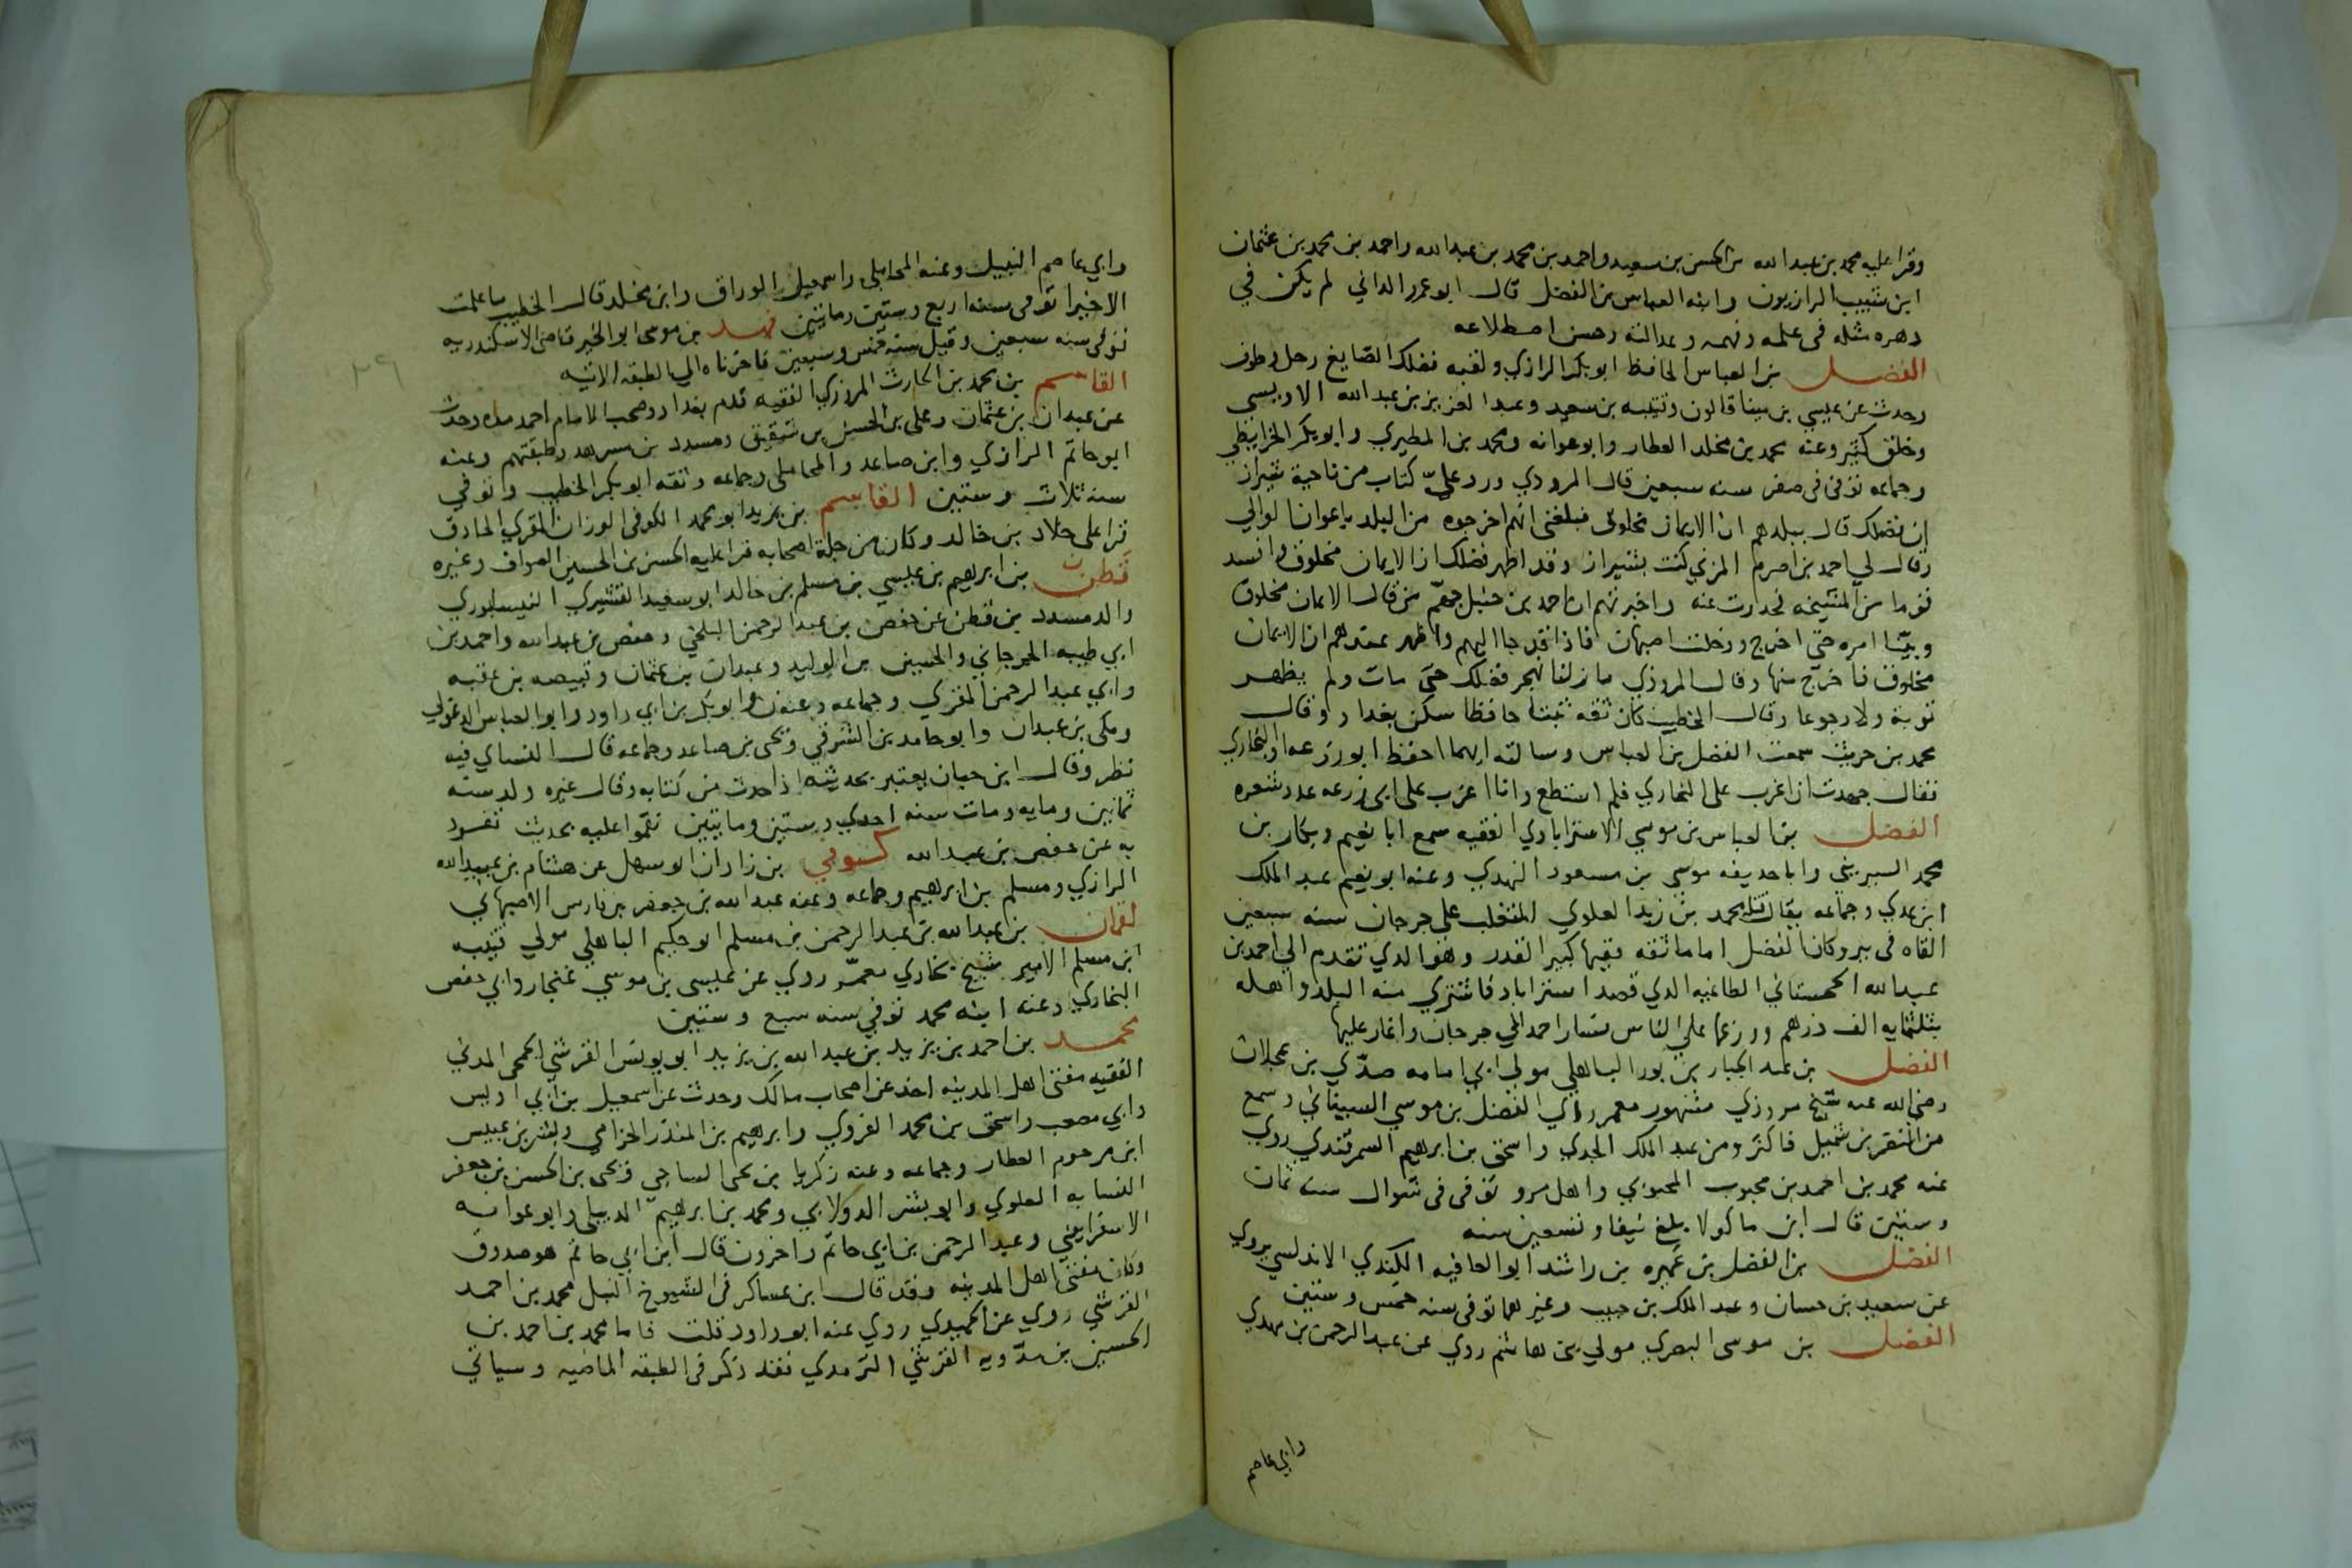 وقرا عليه محمد بن عبدالله بن الحسن بن سعيد واحمد بن محمد بن عبدالله واحمد بن محمد بن عثمان
ابن شبيب الرازيون وابنه العباس بن الفضل قال ابو عمرو الداني لم يكن في
دهره مثله في علمه وفهمه وعدالته وحسن اطلاعه
الفضل بن العباس الحافظ ابو بكر الرازي ولقبه فضلك الصايغ رحل وطوف
وحدث عن عيسي بن مينا قالون وقتيبه بن سعيد وعبد العزيز بن عبدالله الاويسي
وخلق كثير وعنه محمد بن مخلد العطار وابو عوانه ومحمد بن المطيري وابو بكر الخرايطي
وجماعه توفي في صفر سنه سبعين قال المروذي ورد علىّ كتاب من ناحية شيراز
ان فضلك قال ببلدهم ان الايمان مخلوق فبلغني انهم اخرجوه من البلد باعوان الوالي
وقال لي احمد بن اصرم المزني كنت بشيراز وقد اظهر فضلك ان الايمان مخلوق وافسد
قوما من المشيخه فحذرت عنه واخبرتهم ان احمد بن حنبل جهّم من قال الايمان مخلوق
وبيّنا امره حتى اخرج ودخلت اصبهان فاذا قد جا اليهم واظهر عندهم ان الايمان
مخلوق فاخرج منها وقال المروذي ما زلنا نهجر فضلك حتى مات ولم يظهر
توبة ولا رجوعا وقال الخطيب كان ثقه ثبتا حافظا سكن بغداد وقال
محمد بن حريث سمعت الفضل بن العباس وسالته ايهما احفظ ابو زرعه او البخاري
فقال جهدت ان اغرب على البخاري فلم استطع وانا اغرب على ابي زرعه عدد شعره
الفضل بن العباس بن موسي الاستراباذي الفقيه سمع ابا نعيم وبكار بن
محمد السيريني وابا حذيفه موسي بن مسعود النهدي وعنه ابو نعيم عبد الملك
ابن عدي وجماعه يقال قتله محمد بن زيد العلوي المتغلب على جرجان سنه سبعين
القاه في بير وكان الفضل اماما ثقه فقيها كبير القدر وهو الذي تقدم الي احمد بن
عبدالله الخجستاني الطاغيه الذي قصد استراباد فاشتري منه البلد واهله
بثلثمايه الف درهم ووزعها علي الناس فسار احمد الي جرجان واغار عليها
الفضل بن عبد الجبار بن بور الباهلي مولي ابي امامه صدّي بن عجلان
رضي الله عنه شيخ مروزي مشهور معمر رأي الفضل بن موسي السيناني وسمع
من النضر بن شميل فاكثر ومن عبد الملك الجدي واسحق بن ابرهيم السمرقندي روي
عنه محمد بن احمد بن محبوب المحبوبي واهل مرو توفي في شوال سنه ثمان
وستين قال ابن ماكولا بلغ نيفا وتسعين سنه
الفضل بن الفضل بن عميره بن راشد ابو العافيه الكندي الاندلسي يروي
عن سعيد بن حسان وعبد الملك بن حبيب وغيرهما توفي سنه خمس وستين
الفضل بن موسى البصري مولي بني هاشم روي عن عبد الرحمن بن مهدي
وابي عاصم
وابي عاصم النبيل وعنه المحاملي واسمعيل الوراق وابن مخلد قال الخطيب ما علمت
الاخيرا توفي سنه اربع وستين ومايتين فهد بن موسى ابو الخير قاضي الاسكندريه
توفي سنه سبعين وقيل سنه خمس وسبعين فاخرناه الي الطبقه الاتيه
القاسم بن محمد بن الحارث المروزي الفقيه قدم بغداد وصحب الامام احمد مده وحدث
عن عبدان بن عثمان وعلي بن الحسن بن شقيق ومسدد بن مسرهد وطبقتهم وعنه
ابو حاتم الرازي وابن صاعد والمحاملي وجماعه وثقه ابو بكر الخطيب وتوفي
سنه ثلاث وستين القاسم بن يزيد ابو محمد الكوفي الوزان المقري الحاذق
قرا على خلاد بن خالد وكان من جلة اصحابه قرا عليه الحسن بن الحسين الصواف وغيره
قطن بن ابرهيم بن عيسي بن مسلم بن خالد ابو سعيد القشيري النيسابوري
والد مسدد بن قطن عن حفص بن عبد الرحمن البلخي وحفص بن عبدالله واحمد بن
ابي طيبه الجرجاني والحسين بن الوليد وعبدان بن عثمان وقبيصه بن عقبه
وابي عبد الرحمن المقري وجماعه وعنه ن وابو بكر بن ابي داود وابو العباس الدغولي
ومكي بن عبدان وابو حامد بن الشرقي ويحي بن صاعد وجماعه قال النساي فيه
نظر وقال ابن حبان يعتبر بحديثه اذا حدث من كتابه وقال غيره ولد سنه
ثمانين ومايه ومات سنه احدي وستين ومايتين نقموا عليه بحديث تفرد
به عن حفص بن عبدالله كسوفي بن زاذان ابو سهل عن هشام بن عبيدالله
الرازي ومسلم بن ابرهيم وجماعه وعنه عبدالله بن جعفر بن فارس الاصبهاني
لقمان بن عبدالله بن عبد الرحمن بن مسلم ابو حكيم الباهلي مولي قتيبه
ابن مسلم الامير شيخ بخاري معمّر روي عن عيسى بن موسي غنجار وابي حفص
البخاري وعنه ابنه محمد توفي سنه سبع وستين
محمد بن احمد بن يزيد بن عبدالله بن يزيد ابو يونس القرشي الجمحي المدني
الفقيه مفتي اهل المدينه اخذ عن اصحاب مالك وحدث عن اسمعيل بن ابي اويس
وابي مصعب واسحق بن محمد الفروي وابرهيم بن المنذر الحزامي وبشر بن عبيس
ابن مرحوم العطار وجماعه وعنه زكريا بن يحي الساجي ويحي بن الحسن بن جعفر
النسابه العلوي وابو بشر الدولابي ومحمد بن ابرهيم الديبلي وابو عوانه
الاسفرايني وعبد الرحمن بن ابي حاتم واخرون قال ابن ابي حاتم هو صدوق
وكان مفتي اهل المدينه وقد قال ابن عساكر في الشيوخ النبل محمد بن احمد
القرشي روي عن الحميدي روي عنه ابو داود قلت فاما محمد بن احمد بن
الحسين بن مدّويه القرشي الترمذي فقد ذكر في الطبقه الماضيه وسياتي